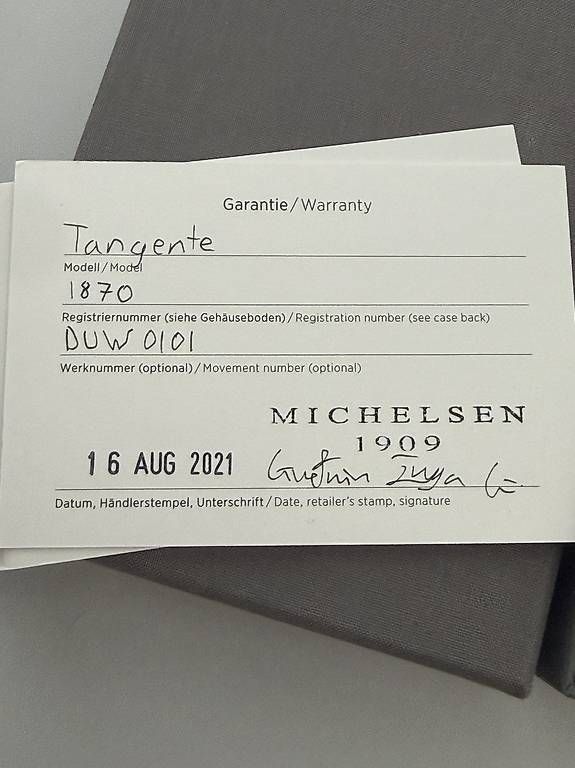 Garantie / Warranty
Tangente
Modell / Model
1870
Registriernummer (siehe Gehäuseboden) / Registration number (see case back)
DUW 0101
Werknummer (optional) / Movement number (optional)
MICHELSEN
1909
16 AUG 2021
Datum, Händlerstempel, Unterschrift / Date, retailer's stamp, signature